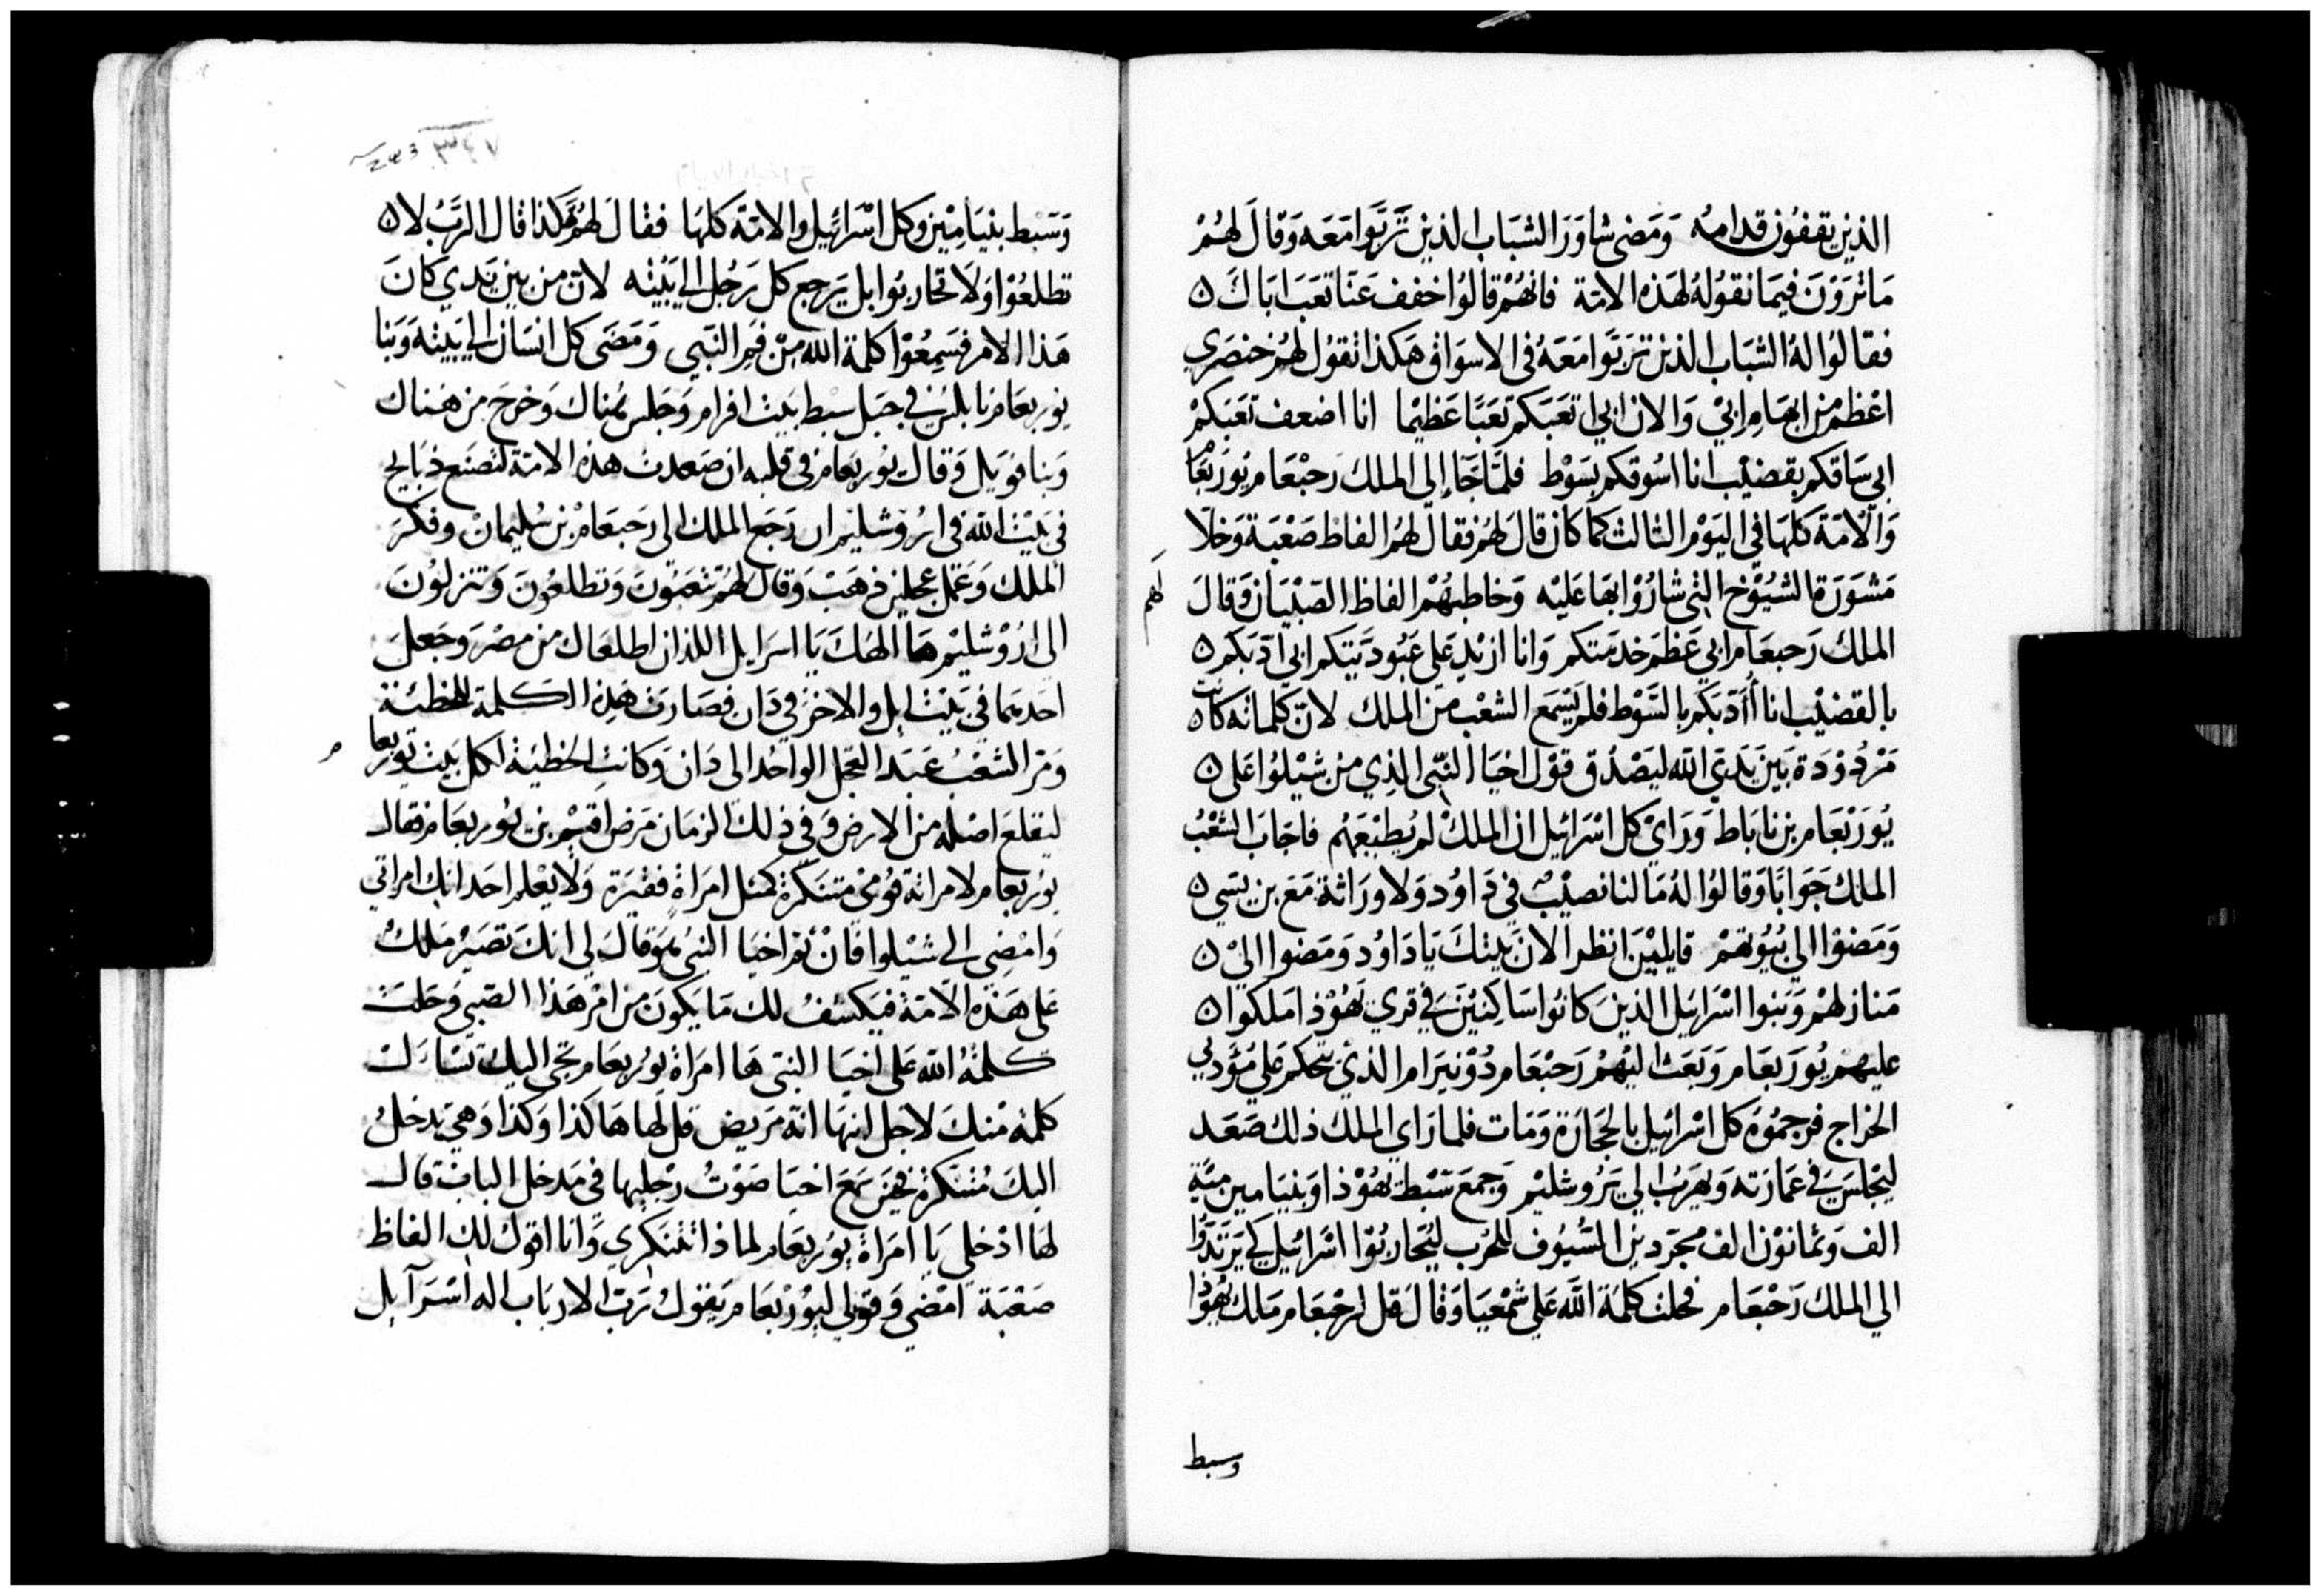 الذين يقفون قدامه ومضى شاور الشباب الذين تربوا معه وقال لهم
ما ترون فيما نقوله لهذه الامة فانهم قالوا خفف عنا تعب اباك
فقالوا له الشباب الذين تربوا معه في الاسواق هكذا تقول لهم خنصري
اعظم من ابهام ابي والان ابي اتعبكم تعبا عظيما انا اضعف تعبكم
ابي ساقكم بقضيب انا اسوقكم بسوط فلما جا إلى الملك رحبعام يوربعام
والامة كلها في اليوم الثالث كما كان قال لهم فقال لهم الفاظ صعبة وخلا
مشورة الشيوخ التي شاروا بها عليه وخاطبهم الفاظ الصبيان وقال لهم
الملك رحبعام ابي عظم خدمتكم وانا ازيد على عبوديتكم ابي ادبكم
بالقضيب انا أأدبكم بالسوط فلم يسمع الشعب من الملك لان كلماته كانت
مردودة بين يدي الله ليصدق قول اخيا النبي الذي من شيلوا على
يوربعام بن ناباط وراى كل اسرائيل ان الملك لم يطبعهم فاجاب الشعب
الملك جوابا وقالوا له ما لنا نصيب في داوود ولا وراثة مع بن يسي
ومضوا الي بيوتهم قايلين انظر الان بيتك يا داود ومضوا الي
منازلهم وبنوا اسرايل الذين كانوا ساكنين في قري يهوذا ملكوا
عليهم يوربعام وبعث اليهم رحبعام دونيرام الذي يتحكم علي مؤدي
الخراج فرجموه كل اسرائيل بالحجارة ومات فلما راي الملك ذلك صعد
ليجلس في عمارته ويهرب الي يروشليم وجمع سبط يهوذا وبنيامين مية
الف وثمانون الف مجردين السيوف للحرب ليحاربوا اسرائيل كي يرتدوا
الي الملك رحبعام فحلت كلمة الله علي شمعيا وقال قل لرحبعام ملك يهوذا
وسبط
٣٤٧
وسبط بنيامين وكل اسرائيل والامة كلها فقال لهم هكذا قال الرب لا
تطلعوا ولا تحاربوا بل يرجع كل رجل الي بيته لان من بين يدي كان
هذا الامر فسمعوا كلمة الله من فم النبي ومضى كل انسان الي بيته وبنا
يوربعام نابلس في جبل سبط بيت افرام وجلس هناك وخرج من هناك
وبنا فنويل وقال يوربعام في قلبه ان صعدت هذه الامة لتصنع ذبايح
في بيت الله في اروشليم ان رجع الملك الى رحبعام بن سليمان وفكر
الملك وعمل عجلين ذهب وقال لهم تتعبون وتطلعون وتنزلون
الى اروشليم ها الهك يا اسرايل اللذان اطلعاك من مصر وجعل
احديهما في بيت ايل والاخر في دان فصارت هذه الكلمة للخطئة
ومر الشعب عبد العجل الواحد الى دان وكانت الخطية لكل بيت يوربعام
ليقلع اصله من الارض وفي ذلك الزمان مرض اقيم بن يوربعام فقال
يوربعام لامراته قومي متنكرة كمثل امراة فقيرة ولا يعلم احد انك امراتي
وامضي الى شيلوا فان ثم اخيا النبي هو قال لي انك تصير ملك
على هذه الامة فيكشف لك ما يكون من امر هذا الصبي وحلت
كلمة الله على اخيا النبي ها امراة يوربعام تجي اليك تسالك
كلمة منك لاجل ابنها انه مريض قل لها هاكذا وكذا وهي تدخل
اليك متنكرة فحين سمع اخيا صوت رجليها في مدخل الباب قال
لها ادخلي يا امراة يوربعام لماذا تتنكري وانا اقول لك الفاظ
صعبة امضي وقولي ليوربعام يقول رب الارباب اله اسرآيل